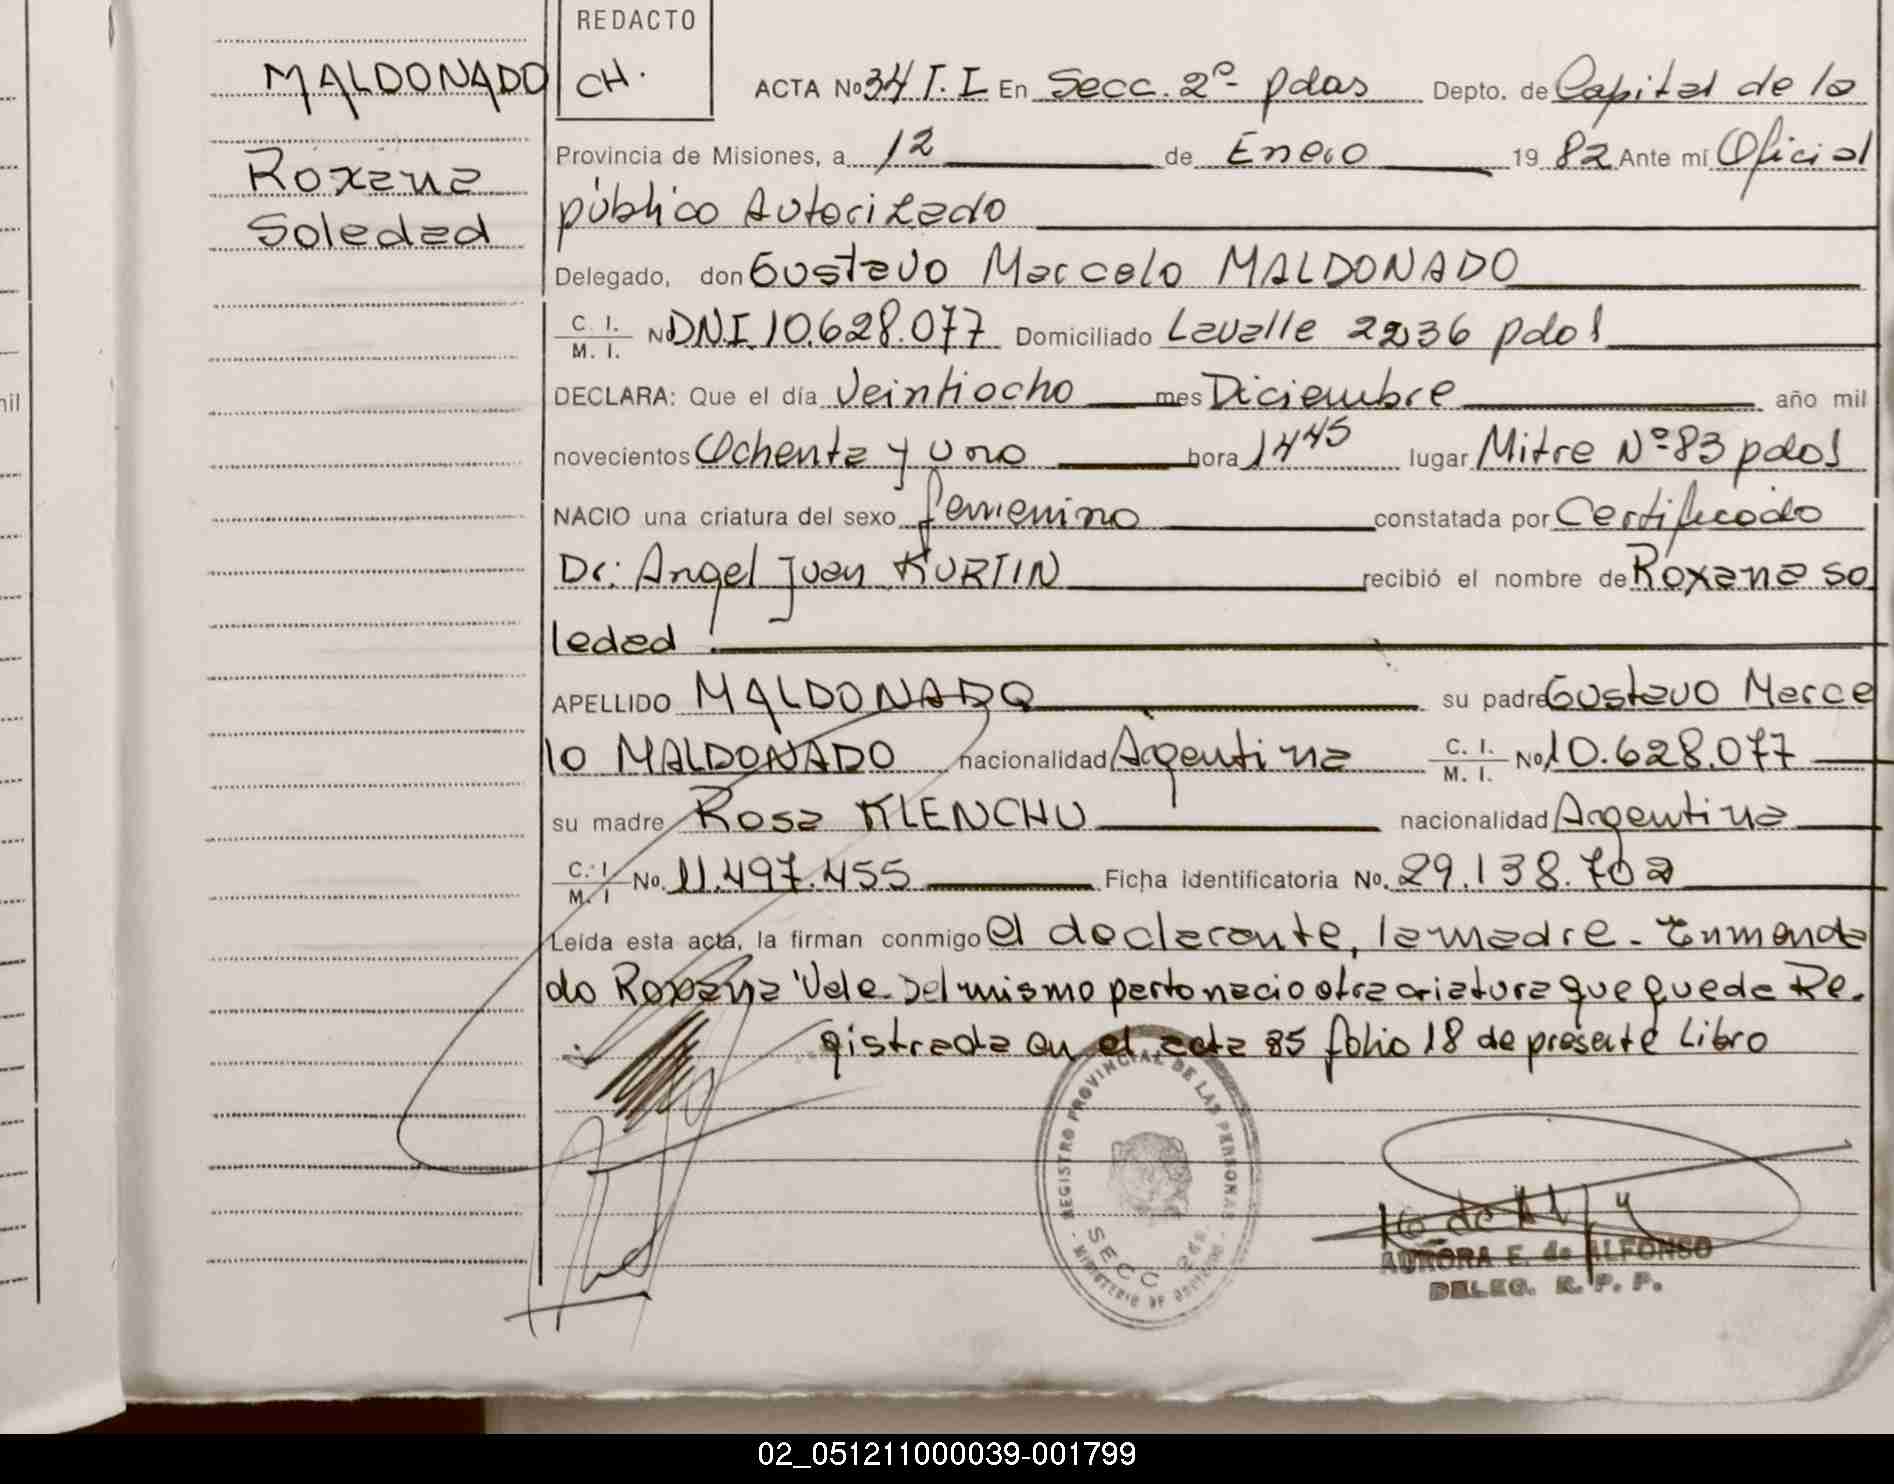 REDACTO
CH.
MALDONADO
Roxana
Soledad
ACTA No 34 T. I En Secc. 2º- pdas Depto. de Capital de la
Provincia de Misiones, a 12 de Enero 19 82 Ante mí Oficial
público Autorizado
Delegado, don Gustavo Marcelo MALDONADO
C. I. / M. I. No DN.I. 10.628.077 Domiciliado Lavalle 2236 pdas
DECLARA: Que el día Veintiocho mes Diciembre año mil
novecientos Ochenta y uno hora 14 45 lugar Mitre Nº 83 pdas
NACIO una criatura del sexo femenino constatada por Certificado
Dr: Angel Juan KURTIN recibió el nombre de Roxana So
ledad
APELLIDO MALDONADO su padre Gustavo Marce
lo MALDONADO nacionalidad Argentina C. I. / M. I. No 10.628.077
su madre Rosa KLENCHU nacionalidad Argentina
C. I. / M. I No. 11.497.455 Ficha identificatoria No. 29.138.702
Leída esta acta, la firman conmigo el declarante, la madre - Enmenda
do Roxana "Vale. Del mismo parto nacio otra criatura que queda Re.
gistrada en el acta 35 folio 18 de presente Libro
REGISTRO PROVINCIAL DE LAS PERSONAS
SECC 2da.
MINISTERIO DE GOBIERNO
AURORA E. de ALFONSO
DELEG. R. P. P.
nil
02_051211000039-001799